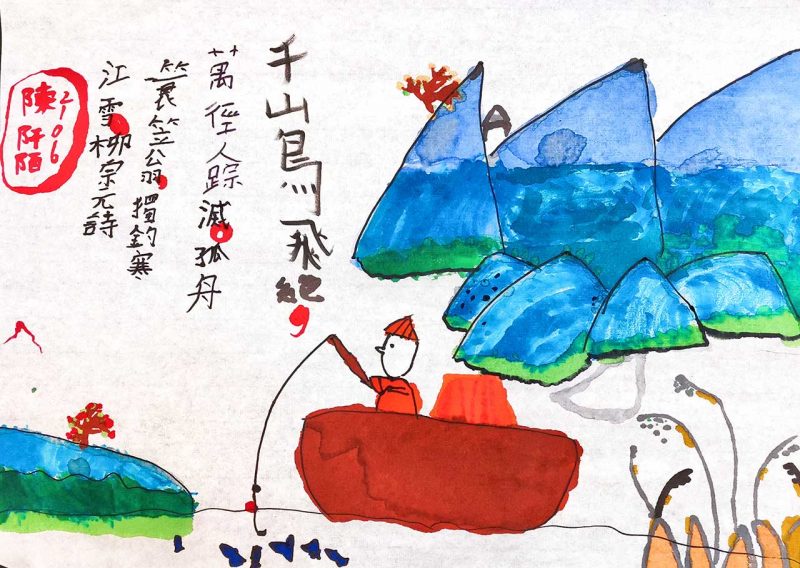 千山鳥飛絕，
萬徑人踪滅。孤舟
簑笠翁，獨釣寒
江雪。柳宗元詩
2106
陳阡陌